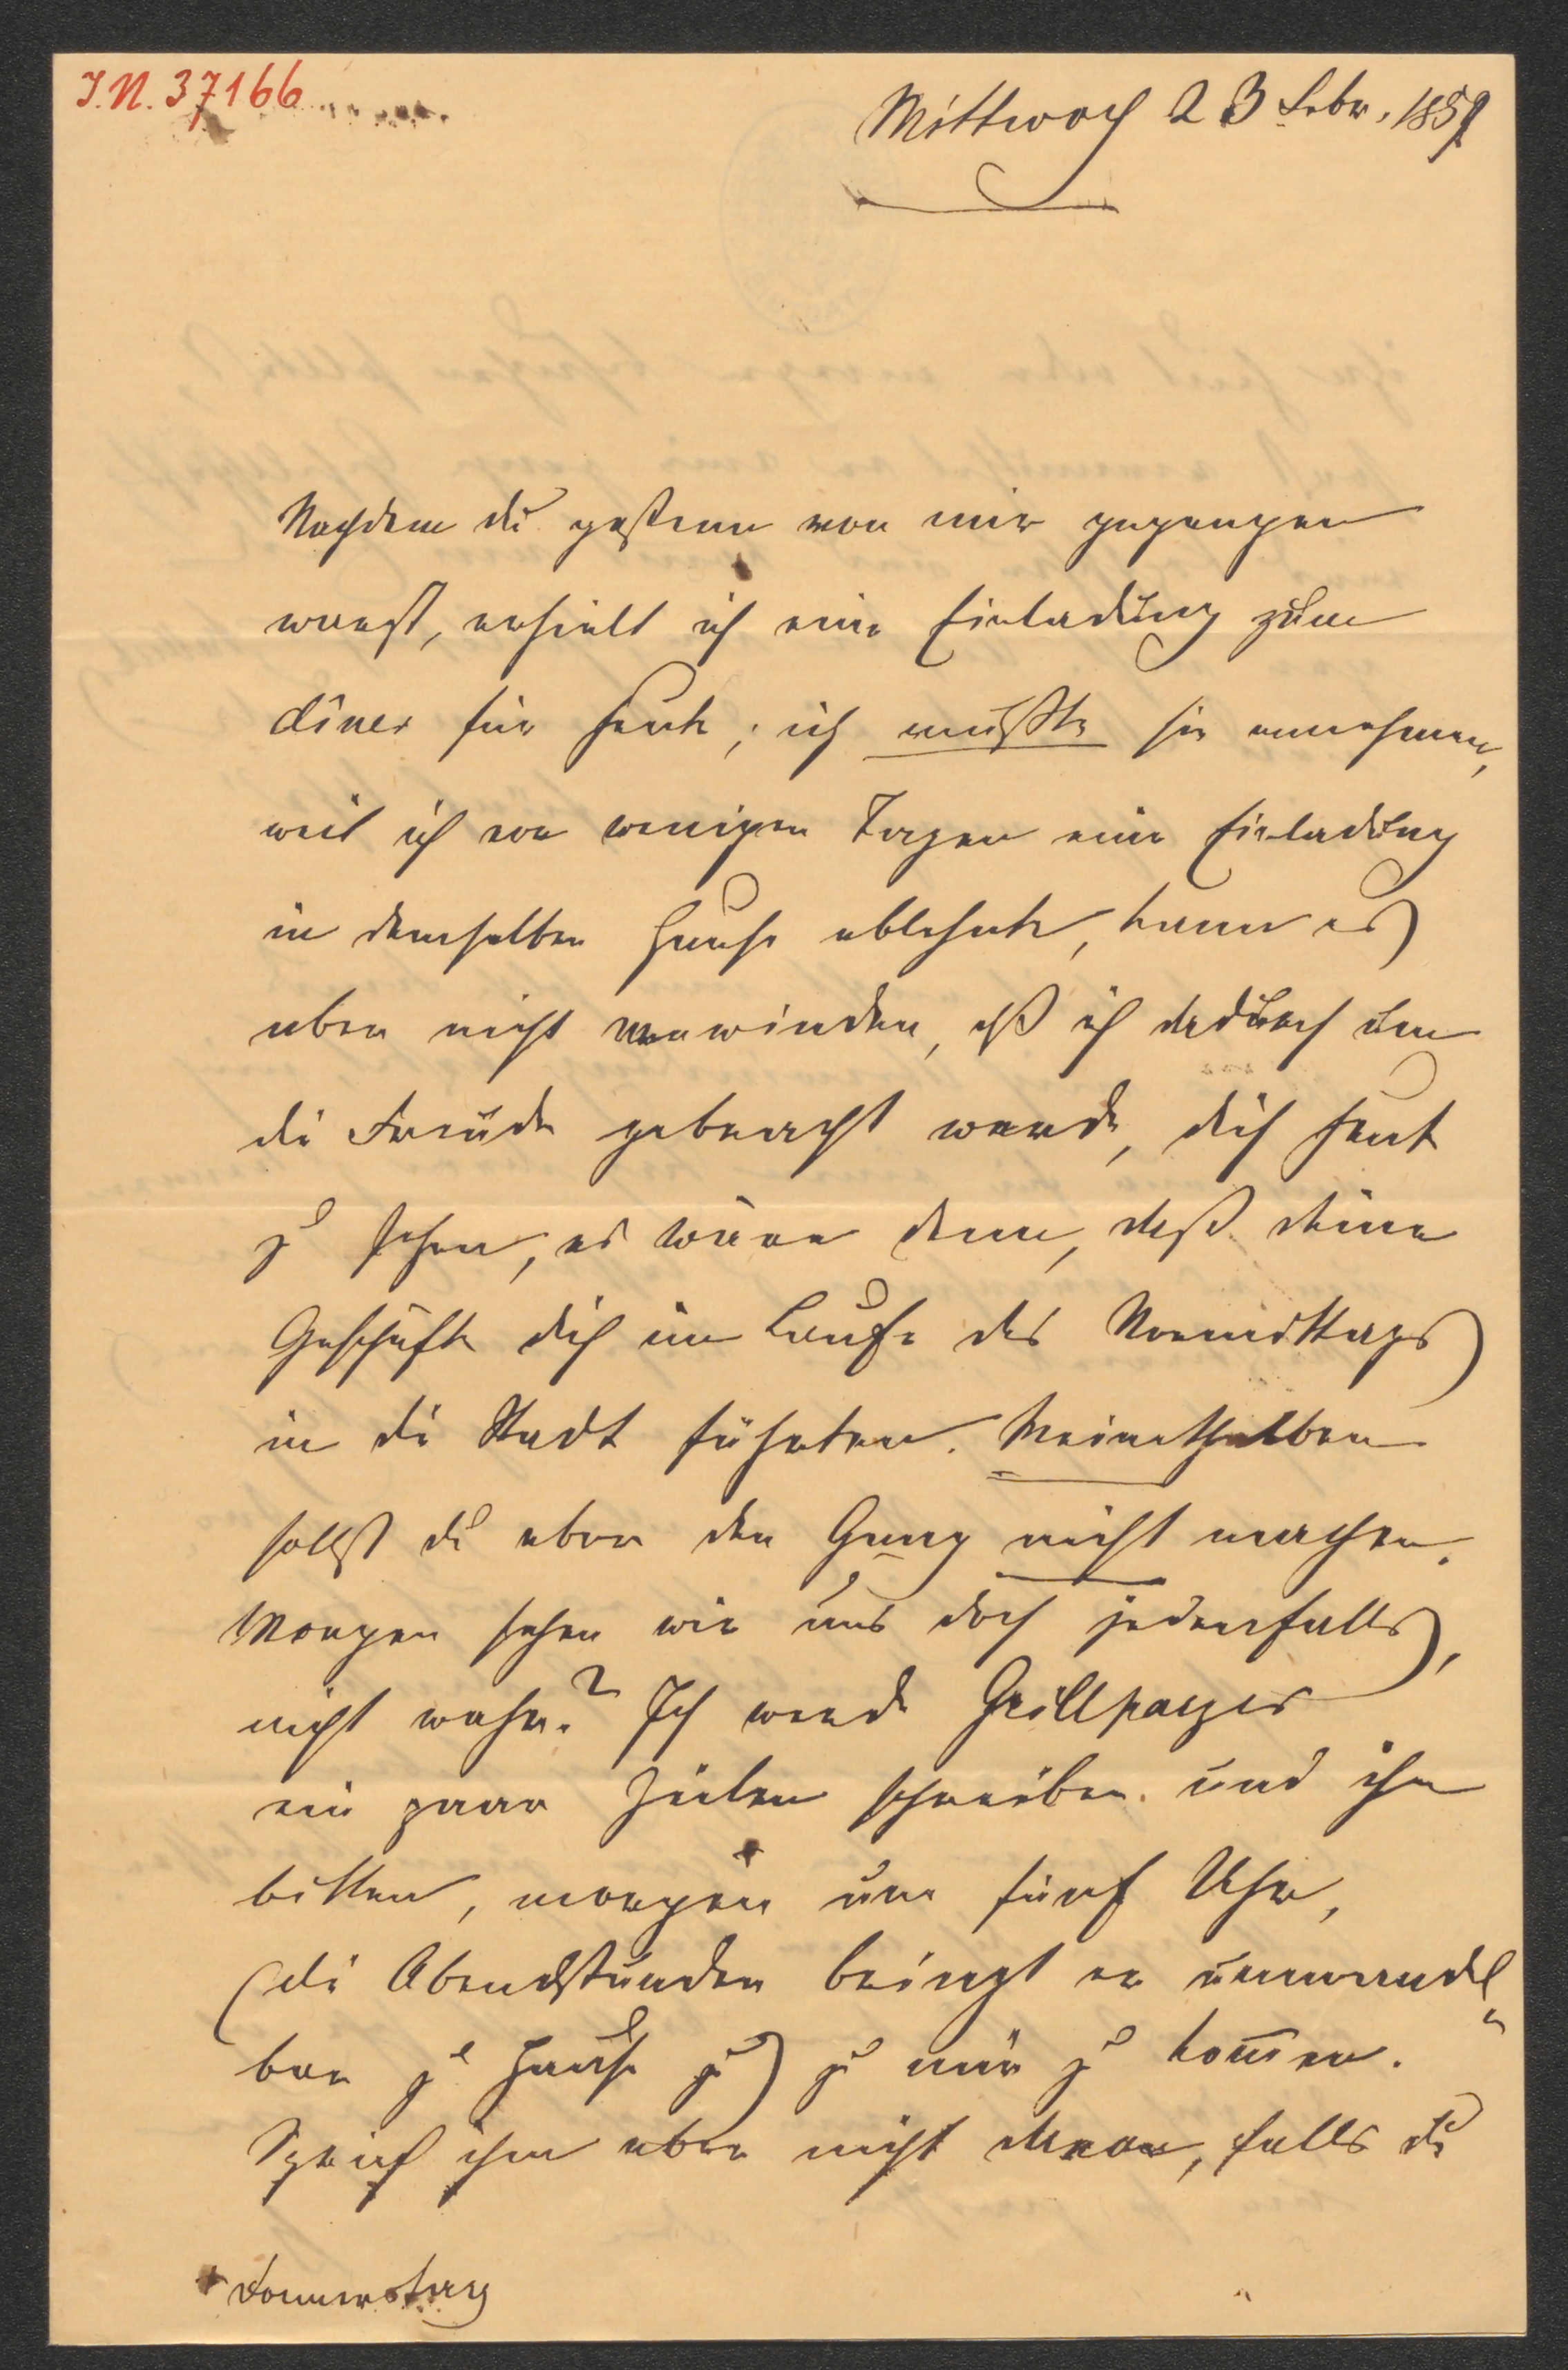 I.N. 37166
Mittwoch 23 Febr. 1859
Nachdem du gestern von mir gegangen
warst, erhielt ich eine Einladung zum
diner für heute; ich mußte sie annehmen,
weil ich vor wenigen Tagen eine Einladung
in demselben Hause ablehnte, kann es
aber nicht verwinden, daß ich dadurch um
die Freude gebracht werde, dich heut
zu sehen, es wäre denn, daß deine
Geschäfte dich im Laufe des Vormittags
in die Stadt führten. Meinethalben
sollst du aber den Gang nicht machen.
Morgen sehen wir uns doch jedenfalls,
nicht wahr? Ich werde Grillparzer
ein paar Zeilen schreiben und ihn
bitten, morgen um fünf Uhr,
(die Abendstunden bringt er unwandel-
bar zu Hause zu) zu mir zu kommen.
Sprich ihm aber nicht davon, falls du
+ Donnerstag